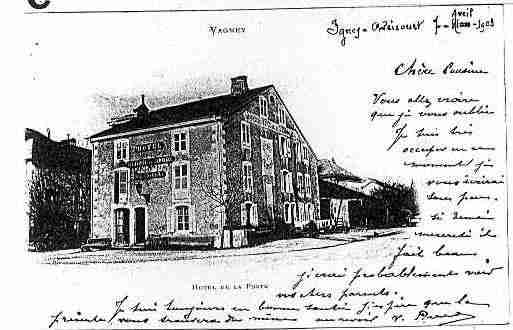 VAGNEY
Igney-Avricourt 7- Avril -1903
Chère Cousine
Vous allez croire
que je vous oublie
Je suis très
occupée en ce
moment je
vous écrirai
sous peu.
Si demain
mercredi il
fait beau
j'irai probablement voir
vos chers parents.
Je suis toujours en bonne santé j'espère que la
présente vous trouvera de même au revoir
HOTEL
HOTEL DE LA POSTE